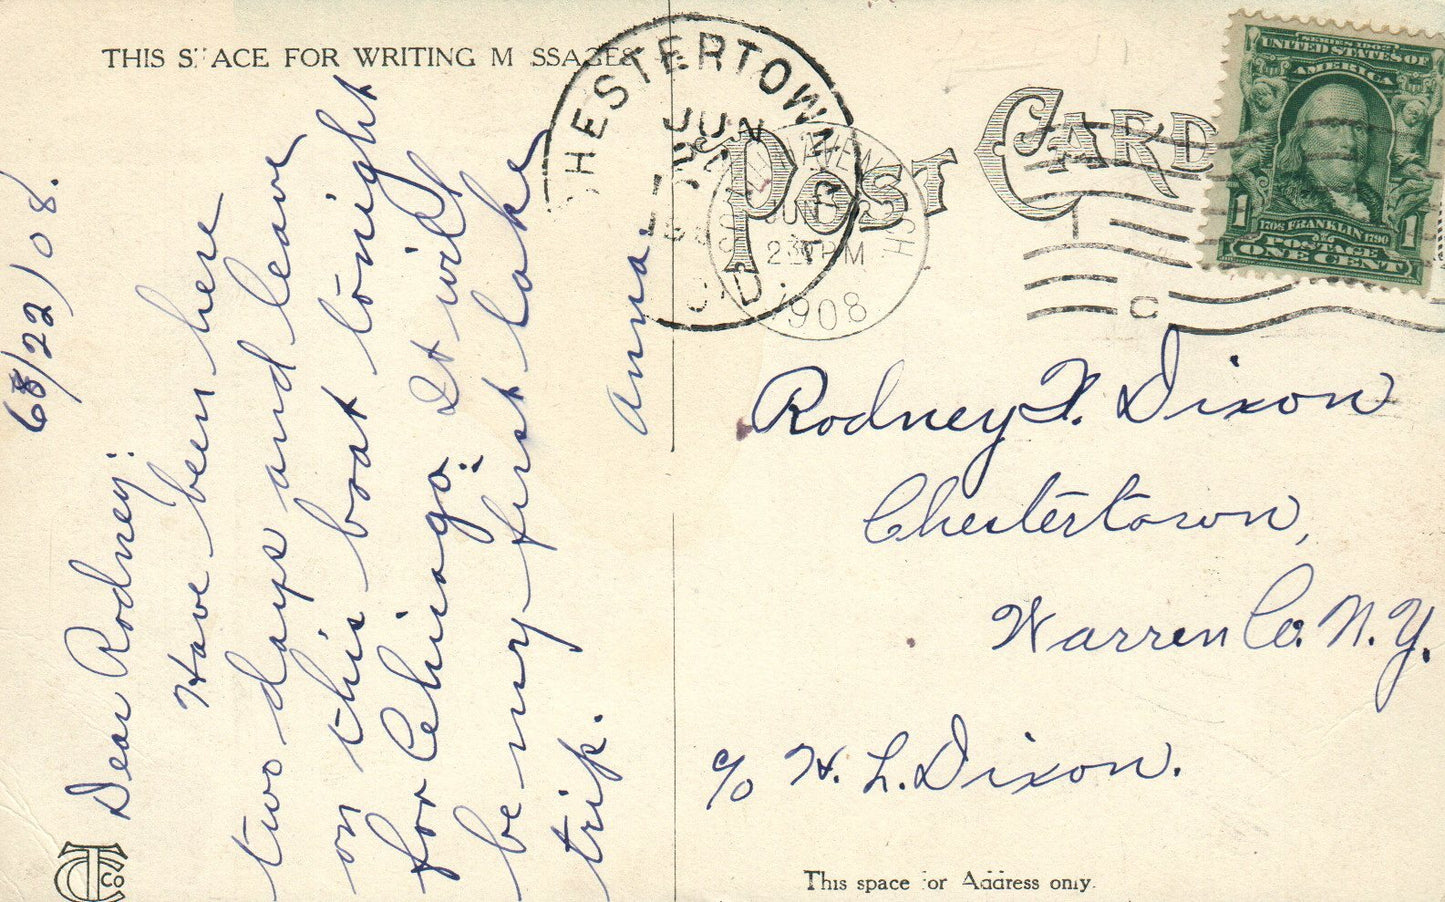 THIS SPACE FOR WRITING MESSAGES
POST CARD
CHESTERTOWN
JUN
HAVEN
MICH
JUN 22
2 PM
1908
C
SERIES 1902
UNITED STATES OF
AMERICA
1706 FRANKLIN 1790
1 1
POSTAGE
ONE CENT
6/22/08.
Dear Rodney:
Have been here
two days and leave
on this boat tonight
for Chicago. It will
be my first lake
trip.
Anna.
Rodney Dixon
Chestertown,
Warren Co. N.Y.
c/o H. L. Dixon.
This space for Address only.
TC Co